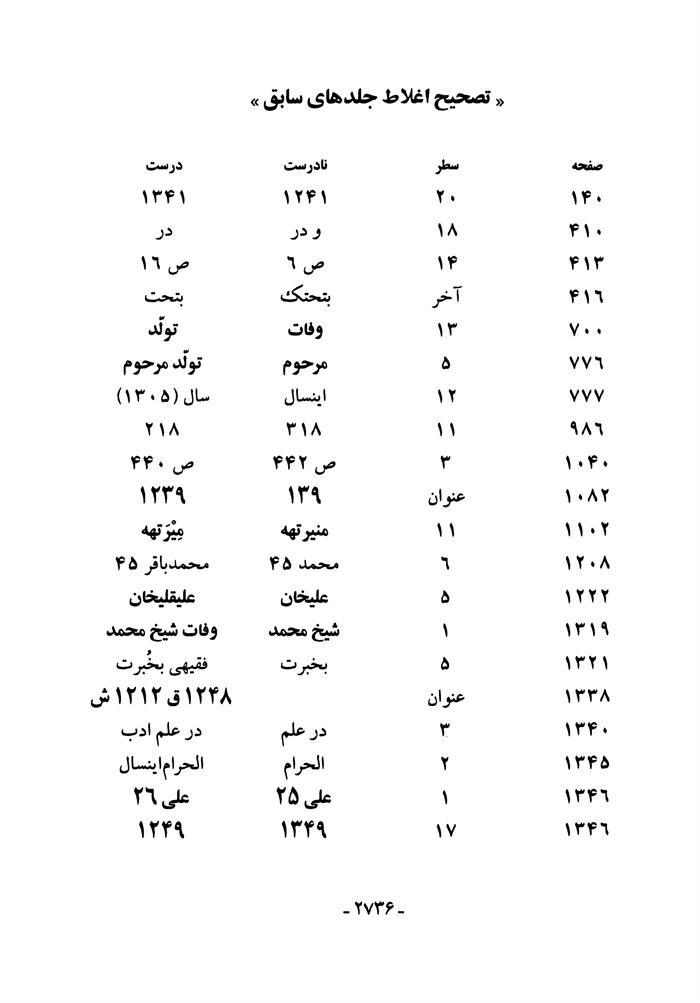 « تصحیح اغلاط جلدهای سابق »
صفحه سطر نادرست درست
۱۴۰ ۲۰ ۱۲۴۱ ۱۳۴۱
۴۱۰ ۱۸ و در در
۴۱۳ ۱۴ ص ۶ ص ۱۶
۴۱۶ آخر بتحتک بتحت
۷۰۰ ۱۳ وفات تولّد
۷۷۶ ۵ مرحوم تولّد مرحوم
۷۷۷ ۱۲ اینسال سال (۱۳۰۵)
۹۸۶ ۱۱ ۳۱۸ ۲۱۸
۱۰۴۰ ۳ ص ۴۴۲ ص ۴۴۰
۱۰۸۲ عنوان ۱۳۹ ۱۲۳۹
۱۱۰۲ ۱۱ منیرتهه مِیْرَتهه
۱۲۰۸ ۶ محمد ۴۵ محمدباقر ۴۵
۱۲۲۲ ۵ علیخان علیقلیخان
۱۳۱۹ ۱ شیخ محمد وفات شیخ محمد
۱۳۲۱ ۵ بخبرت فقیهی بخُبرت
۱۳۳۸ عنوان ۱۲۴۸ ق ۱۲۱۲ ش
۱۳۴۰ ۳ در علم در علم ادب
۱۳۴۵ ۲ الحرام الحرام‌اینسال
۱۳۴۶ ۱ علی ۲۵ علی ۲۶
۱۳۴۶ ۱۷ ۱۳۴۹ ۱۲۴۹
- ۲۷۳۶ -